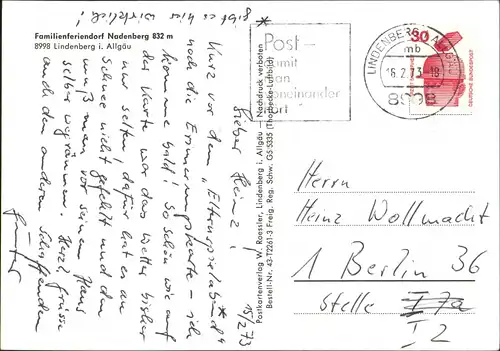 Familienferiendorf Nadenberg 832 m
8998 Lindenberg i. Allgäu
15/2 73
Lieber Heinz!
Kurz vor dem „Elternsprechabend"*
noch die Erinnerungskarte – ich
komme bald! So schön wie auf
der Karte war das Wetter bisher
nur selten, dafür hat es an
Schnee nicht gefehlt und den
muß man vor seinem Haus
selber wegräumen. Herzl. Grüße
auch den anderen Schaffenden
Günter
* gibt es hier wirklich!
Postkartenverlag W. Roessler, Lindenberg i. Allgäu – Nachdruck verboten
Bestell-Nr. 43-T2261-3 Freig. Reg. Schw. GS 5335 (Thorbecke-Luftbild)
Post –
damit
man
voneinander
hört
LINDENBERG i. ALLGÄU
mb
16.2.73 – 18
8998
30
DEUTSCHE BUNDESPOST
Herrn
Heinz Wollmacht
1 Berlin 36
Stelle I 7a
I 2